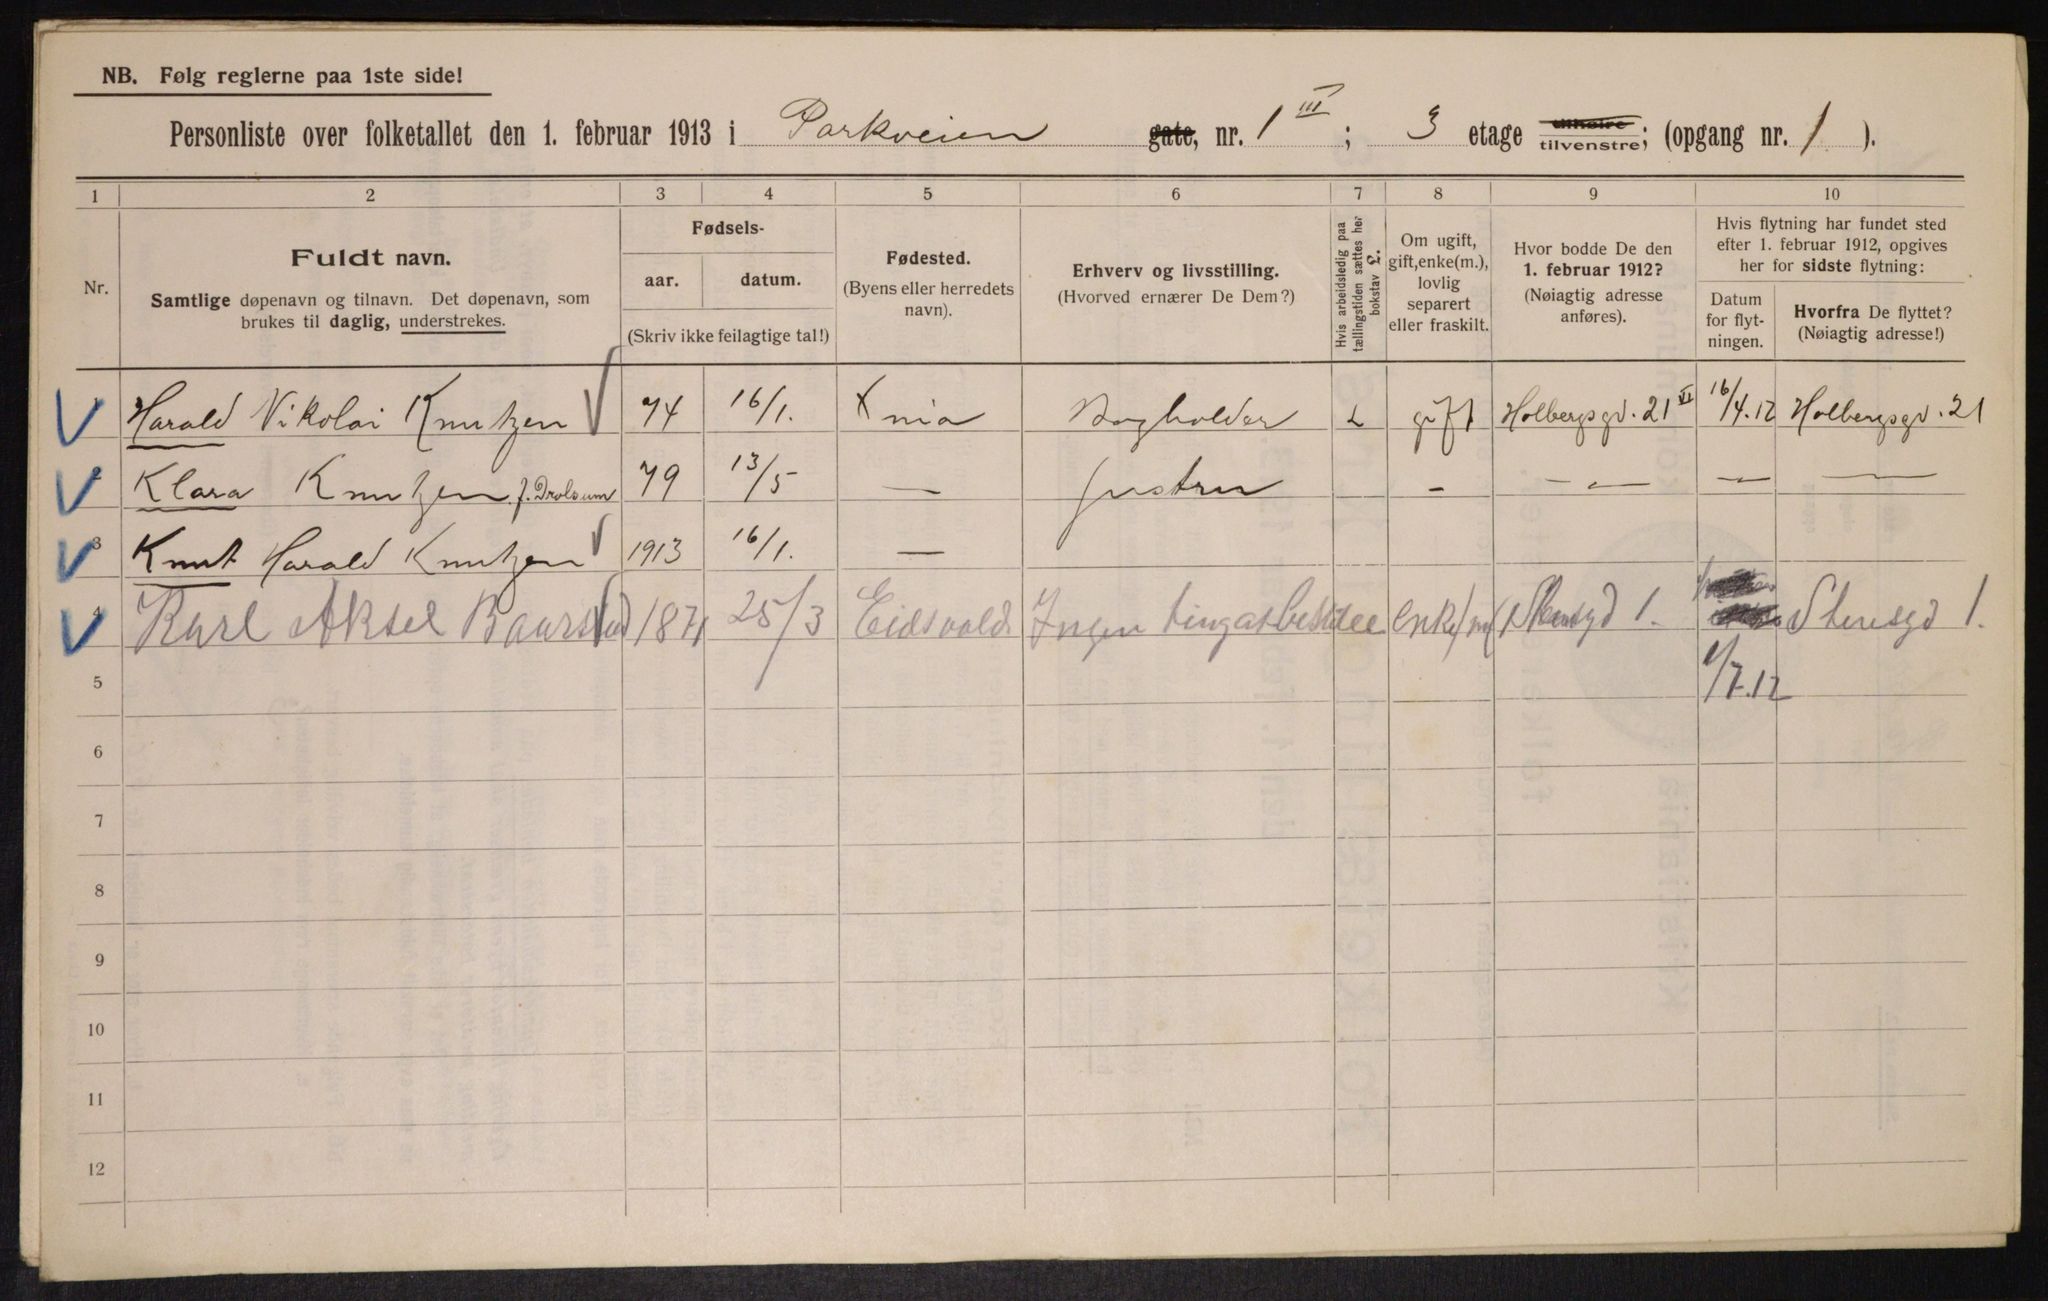 NB. Følg reglerne paa 1ste side!
Personliste over folketallet den 1. februar 1913 i Parkveien gate, nr. 1 III; 3 etage tilhøire tilvenstre; (opgang nr. 1).
1 2 3 4 5 6 7 8 9 10
Nr.
Fuldt navn.
Samtlige døpenavn og tilnavn. Det døpenavn, som
brukes til daglig, understrekes.
Fødsels-
aar. datum.
(Skriv ikke feilagtige tal!)
Fødested.
(Byens eller herredets
navn).
Erhverv og livsstilling.
(Hvorved ernærer De Dem?)
Hvis arbeidsledig paa
tællingstiden sættes her
bokstav L.
Om ugift,
gift, enke(m.),
lovlig
separert
eller fraskilt.
Hvor bodde De den
1. februar 1912?
(Nøiagtig adresse
anføres).
Hvis flytning har fundet sted
efter 1. februar 1912, opgives
her for sidste flytning:
Datum
for flyt-
ningen.
Hvorfra De flyttet?
(Nøiagtig adresse!)
1 Harald Nikolai Knutzen 74 16/1. Xnia Bogholder L gift Holbergsgd. 21 VI 16/4.12 Holbergsgd. 21
2 Klara Knutzen f. Drolsum 79 13/5 — Hustru - - — — —
3 Knut Harald Knutzen 1913 16/1. —
4 Karl Aksel Baarstad 1871 25/3 Eidsvold Ingen enke/m Stensgd 1. Stensgd 1.
5 1/7.12
6
7
8
9
10
11
12